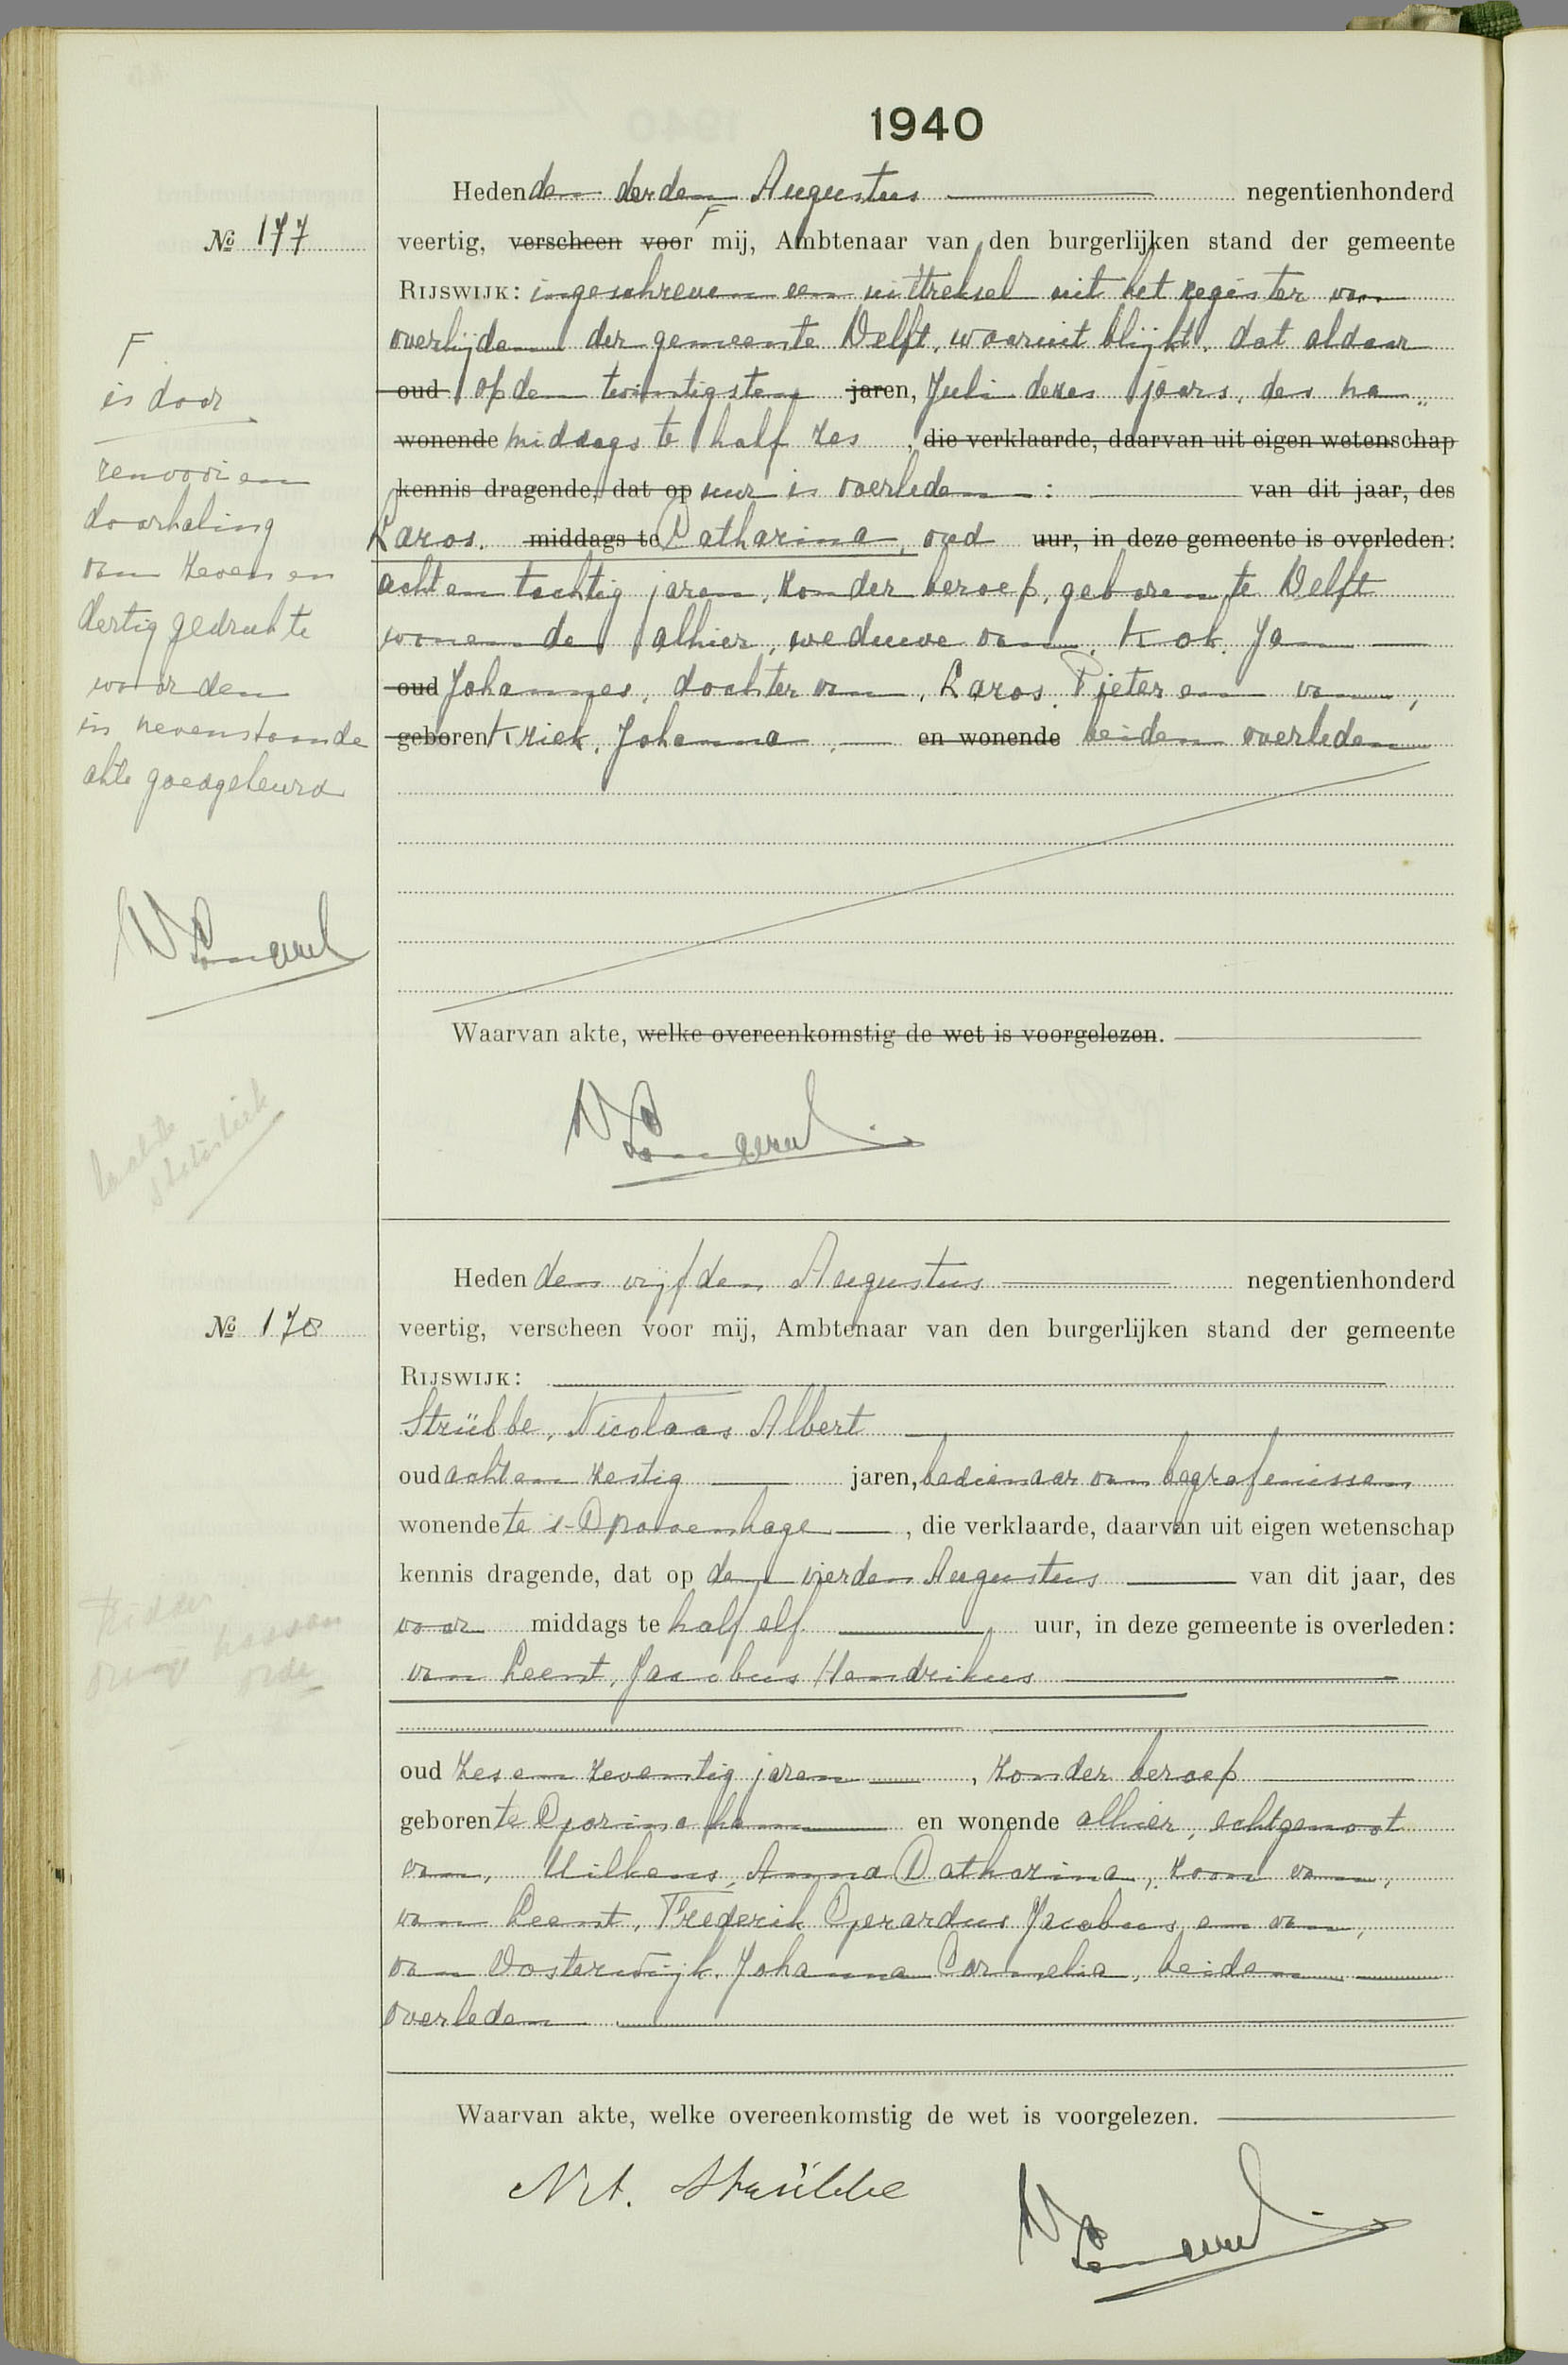 1940
Heden den derden Augustus negentienhonderd
№ 177
veertig, verscheen voor F mij, Ambtenaar van den burgerlijken stand der gemeente
RIJSWIJK: ingeschreven een uittreksel uit het register van
overlijden der gemeente Delft, waaruit blijkt, dat aldaar
oud op den twintigsten jaren, Juli dezes jaars, des na„
wonende middags te half zes , die verklaarde, daarvan uit eigen wetenschap
kennis dragende, dat op uur is overleden: van dit jaar, des
Karos. middags te Catharina, oud uur, in deze gemeente is overleden:
achtentachtig jaren, zonder beroep, geboren te Delft
wonende alhier, weduwe van, Kok, Jan
oud Johannes, dochter van, Karos, Pieter en van,
geboren Kriek, Johanna, en wonende beiden overleden
F
is door
renvooi en
doorhaling
van zeven en
dertig gedrukte
woorden
in nevenstaande
akte goedgekeurd
Waarvan akte, welke overeenkomstig de wet is voorgelezen.
laatste
statistiek
Heden den vijfden Augustus negentienhonderd
№ 178
veertig, verscheen voor mij, Ambtenaar van den burgerlijken stand der gemeente
RIJSWIJK:
Strübbe, Nicolaas Albert
oud achtenzestig jaren, bedienaar van begrafenissen
wonende te 's-Gravenhage , die verklaarde, daarvan uit eigen wetenschap
kennis dragende, dat op den vierden Augustus van dit jaar, des
voor middags te half elf uur, in deze gemeente is overleden:
van Leent, Jacobus Hendrikus
oud zesenzeventig jaren , zonder beroep
geboren te Gorinchem en wonende alhier, echtgenoot
van, Wilkens, Anna Catharina, zoon van,
van Leent, Frederik Gerardus Jacobus en van,
van Oosterwijk, Johanna Cornelia, beiden
overleden
Ridder
oranje nassau
orde
Waarvan akte, welke overeenkomstig de wet is voorgelezen.
N.A. Strübbe